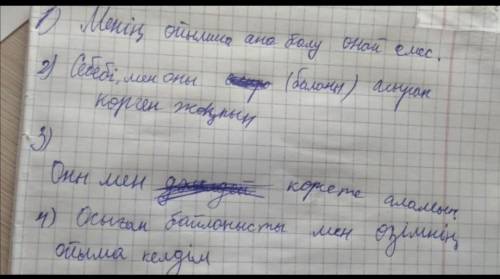 1) Менің ойымша ана болу оңай емес.
2) Себебі, мен оны (баланы) асырап
көрген жоқпын
3)
Оны мен көрсете аламын
4) Осыған байланысты мен өзімнің
ойыма келдім